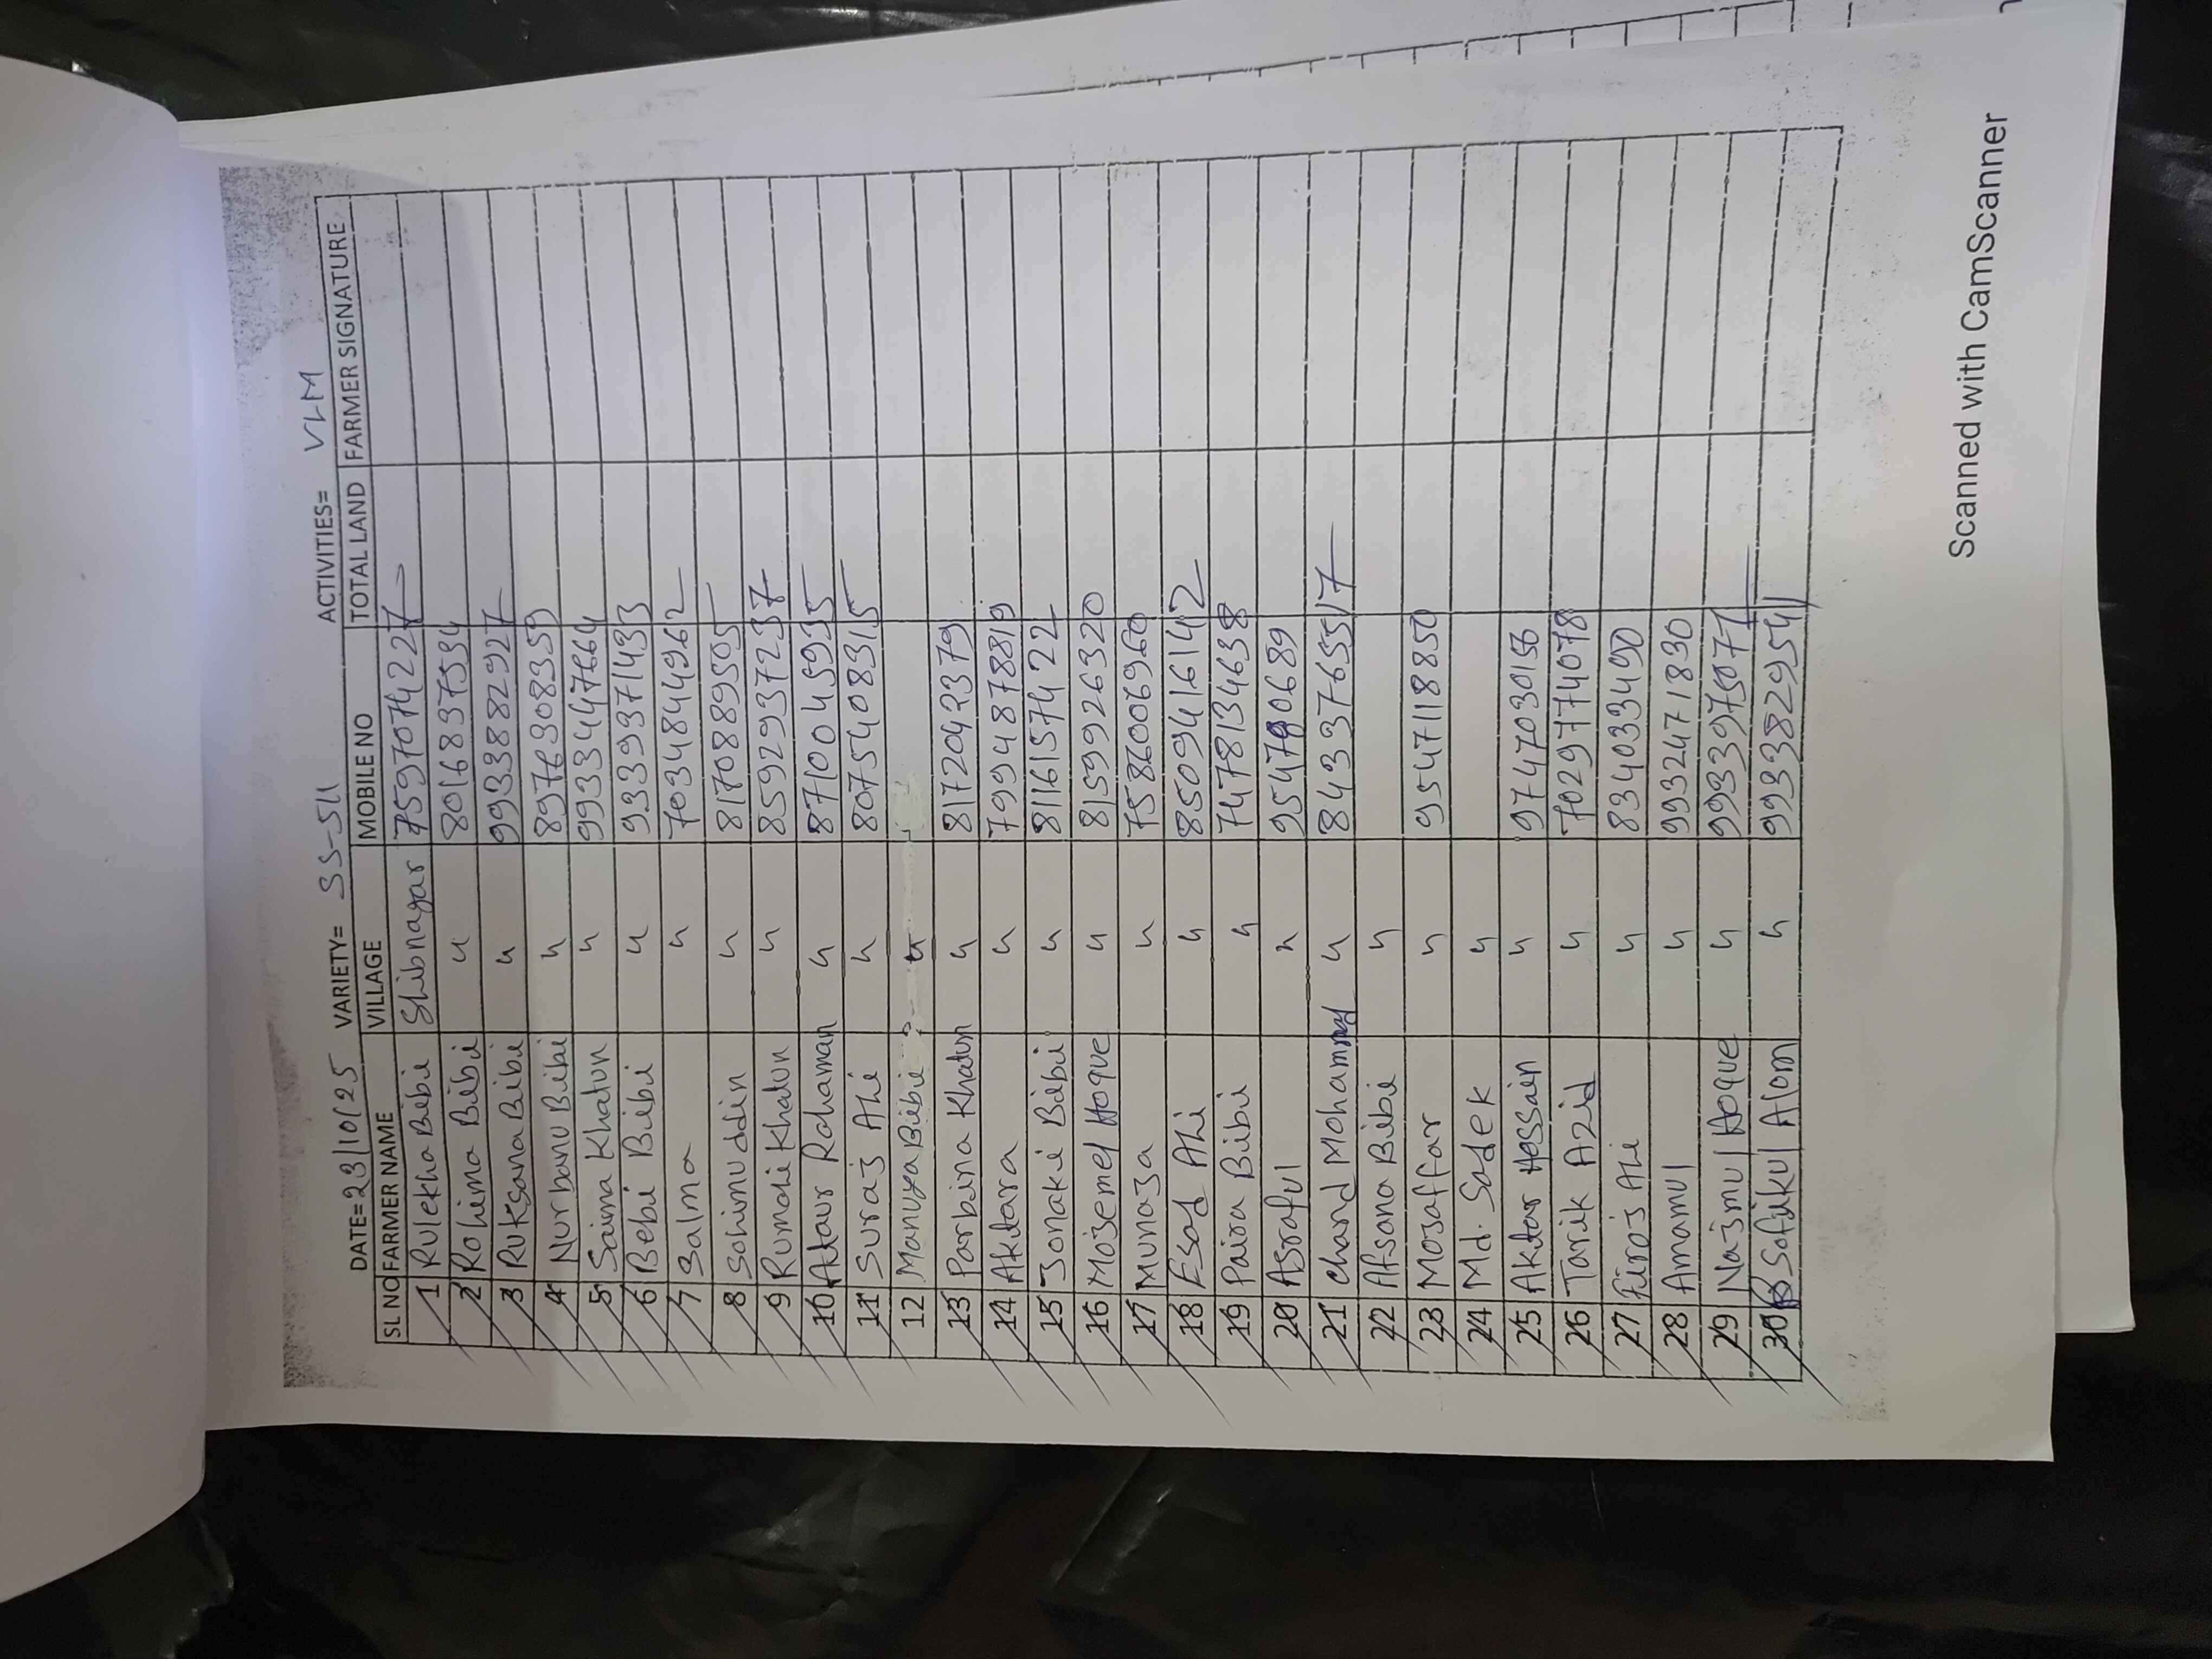 DATE=23/10/25 VARIETY= SS-511 ACTIVITIES= VLM
SL NO FARMER NAME VILLAGE MOBILE NO TOTAL LAND FARMER SIGNATURE
1 Rulekha Bibi Shibnagar 7597074227
2 Rohima Bibi " 8016837534
3 Ruksana Bibi " 9933882927
4 Nurbanu Bibi " 8976308359
5 Saima Khatun " 9933447664
6 Bebi Bibi " 9339371433
7 Salma " 7034844962
8 Sohimuddin " 8170889505
9 Rumali Khatun " 8592937237
10 Ataur Rahaman " 8710045935
11 Suraj Ali " 8075408315
12 Manuya Bibi "
13 Parbina Khatun " 8172042379
14 Aktara " 7994878819
15 Jonaki Bibi " 8116157422
16 Mojemel Hoque " 8159926320
17 Munaja " 7586006960
18 Esad Ali " 8509416142
19 Paira Bibi " 7478134638
20 Asraful " 9547806689
21 Chand Mohammad " 8433765517
22 Afsana Bibi "
23 Mosaffar " 9547118850
24 Md. Sadek "
25 Aktar Hossain " 9747030156
26 Tarik Azid " 7029774078
27 Firoj Ali " 834033490
28 Anamul " 9932471830
29 Najmul Hoque " 9933975077
30 Sofikul Alom " 9933829541
Scanned with CamScanner